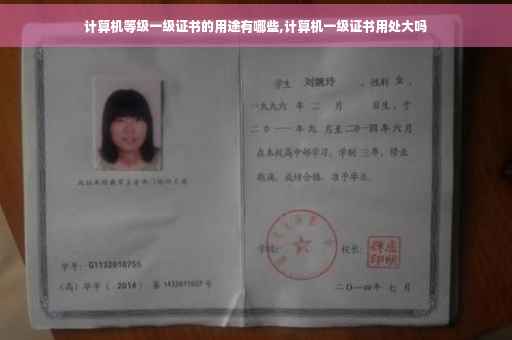 计算机等级一级证书的用途有哪些,计算机一级证书用处大吗
学生 刘婉玲 ,性别 女 ,
一九九六 年 二 月 日生,于
二〇一一 年 九 月至 二〇一四 年 六 月
在本校高中部学习,学制 三 年,修业
期满,成绩合格,准予毕业。
学号: G1132010755
(高)毕字( 2014 )第 1432011027 号
学校:
校长:
二〇一四年 七 月